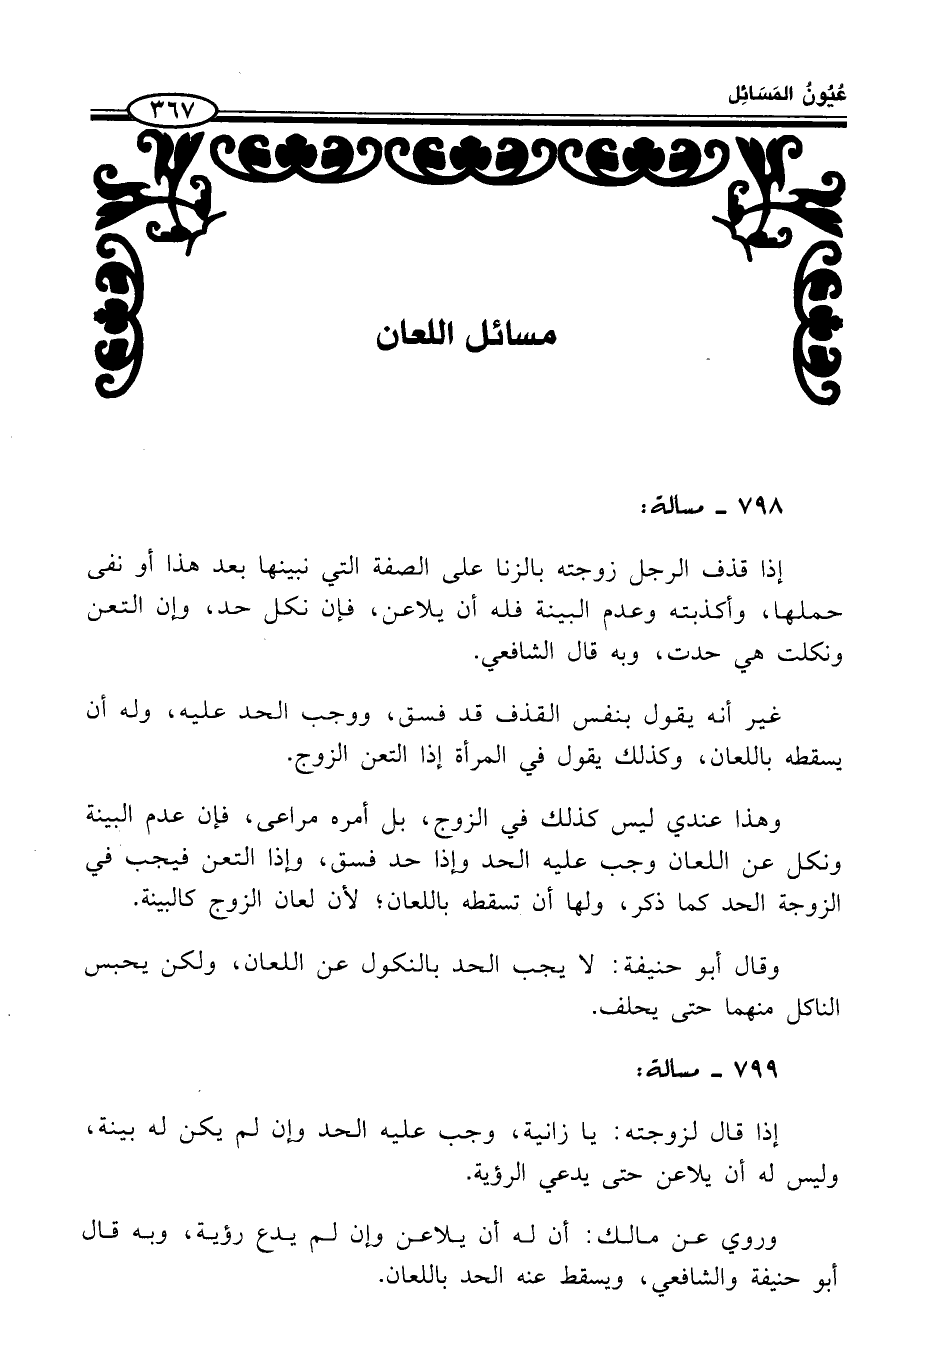 عُيُونُ المَسَائِل
٣٦٧
مسائل اللعان
٧٩٨ ـ مسالة:
إذا قذف الرجل زوجته بالزنا على الصفة التي نبينها بعد هذا أو نفى
حملها، وأكذبته وعدم البينة فله أن يلاعن، فإن نكل حد، وإن التعن
ونكلت هي حدت، وبه قال الشافعي.
غير أنه يقول بنفس القذف قد فسق، ووجب الحد عليه، وله أن
يسقطه باللعان، وكذلك يقول في المرأة إذا التعن الزوج.
وهذا عندي ليس كذلك في الزوج، بل أمره مراعى، فإن عدم البينة
ونكل عن اللعان وجب عليه الحد وإذا حد فسق، وإذا التعن فيجب في
الزوجة الحد كما ذكر، ولها أن تسقطه باللعان؛ لأن لعان الزوج كالبينة.
وقال أبو حنيفة: لا يجب الحد بالنكول عن اللعان، ولكن يحبس
الناكل منهما حتى يحلف.
٧٩٩ ـ مسالة:
إذا قال لزوجته: يا زانية، وجب عليه الحد وإن لم يكن له بينة،
وليس له أن يلاعن حتى يدعي الرؤية.
وروي عن مالك: أن له أن يلاعن وإن لم يدع رؤية، وبه قال
أبو حنيفة والشافعي، ويسقط عنه الحد باللعان.